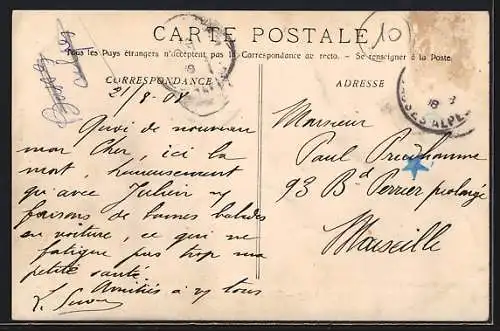 CARTE POSTALE
10
Tous les Pays étrangers n'acceptent pas la Correspondance au recto. — Se renseigner à la Poste.
CORRESPONDANCE
ADRESSE
21/8.08
Quoi de nouveau
mon Cher, ici la
mort, heureusement
qu'avec Julien ns
faisons de bonnes balades
en voiture, ce qui ne
fatigue pas trop ma
petite santé.
Amitiés à vs tous
Monsieur
Paul Prudhomme
93 Bd Perrier prolongé
Marseille
BASSES ALPES